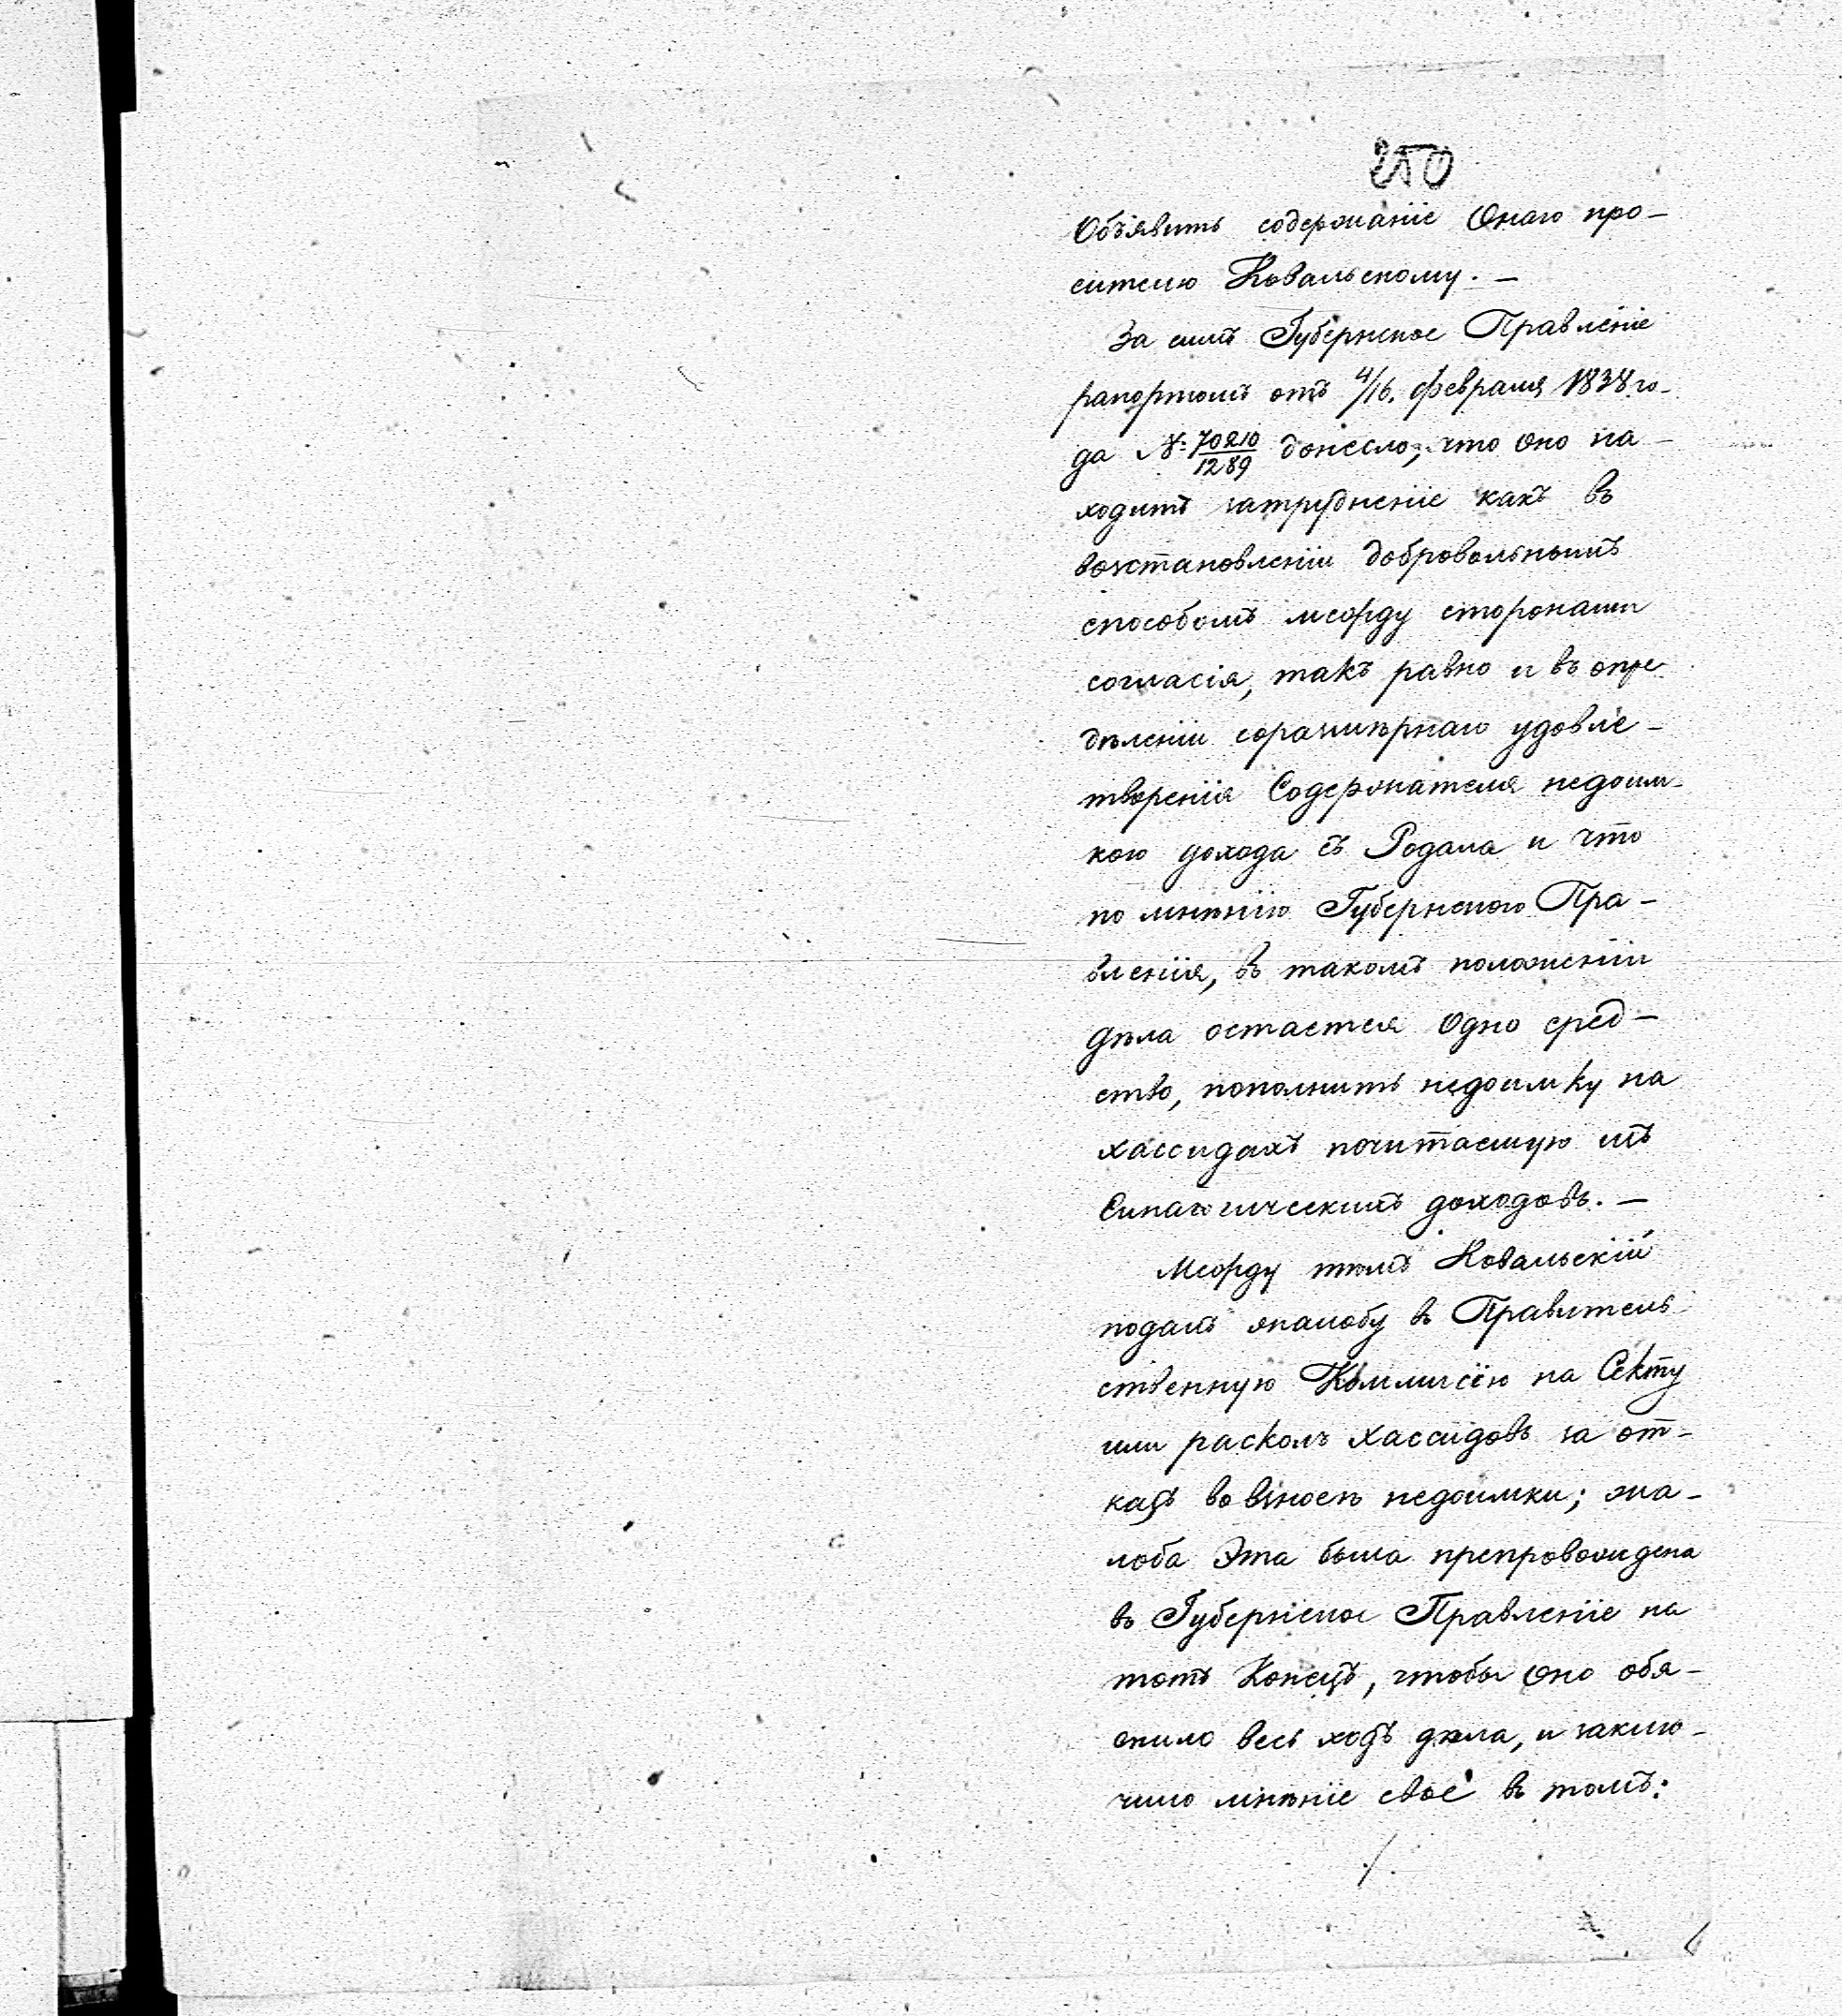 250
Объявить содержаніе Онаго про-
сителю Ковальскому. —
За симъ Губернское Правленіе
рапортомъ отъ 4/16. февраля 1838 го-
да №: 70210/1289 донесло, что оно на-
ходитъ затрудненіе какъ въ
возстановленіи добровольнымъ
способомъ между сторонами
согласія, такъ равно и въ опре
дѣленіи соразмѣрнаго удовле-
творенія Содержателя недоим-
кою дохода съ Родала и что
по мнѣнію Губернскаго Пра-
вленія, въ такомъ положеніи
дѣла остается Одно сред-
ство, пополнить недоимку на
хассидахъ почитаемую изъ
Синагогическихъ доходовъ. —
Между тѣмъ Ковальскій
подалъ жалобу въ Правитель-
ственную Коммисію на Секту
или расколъ хассидовъ за от-
казъ во взносѣ недоимки; жа-
лоба Эта была препровождена
въ Губернское Правленіе на
тотъ Конецъ, чтобы Оно объя-
снило весь ходъ дѣла, и заклю-
чило мнѣніе своё въ томъ:
./.